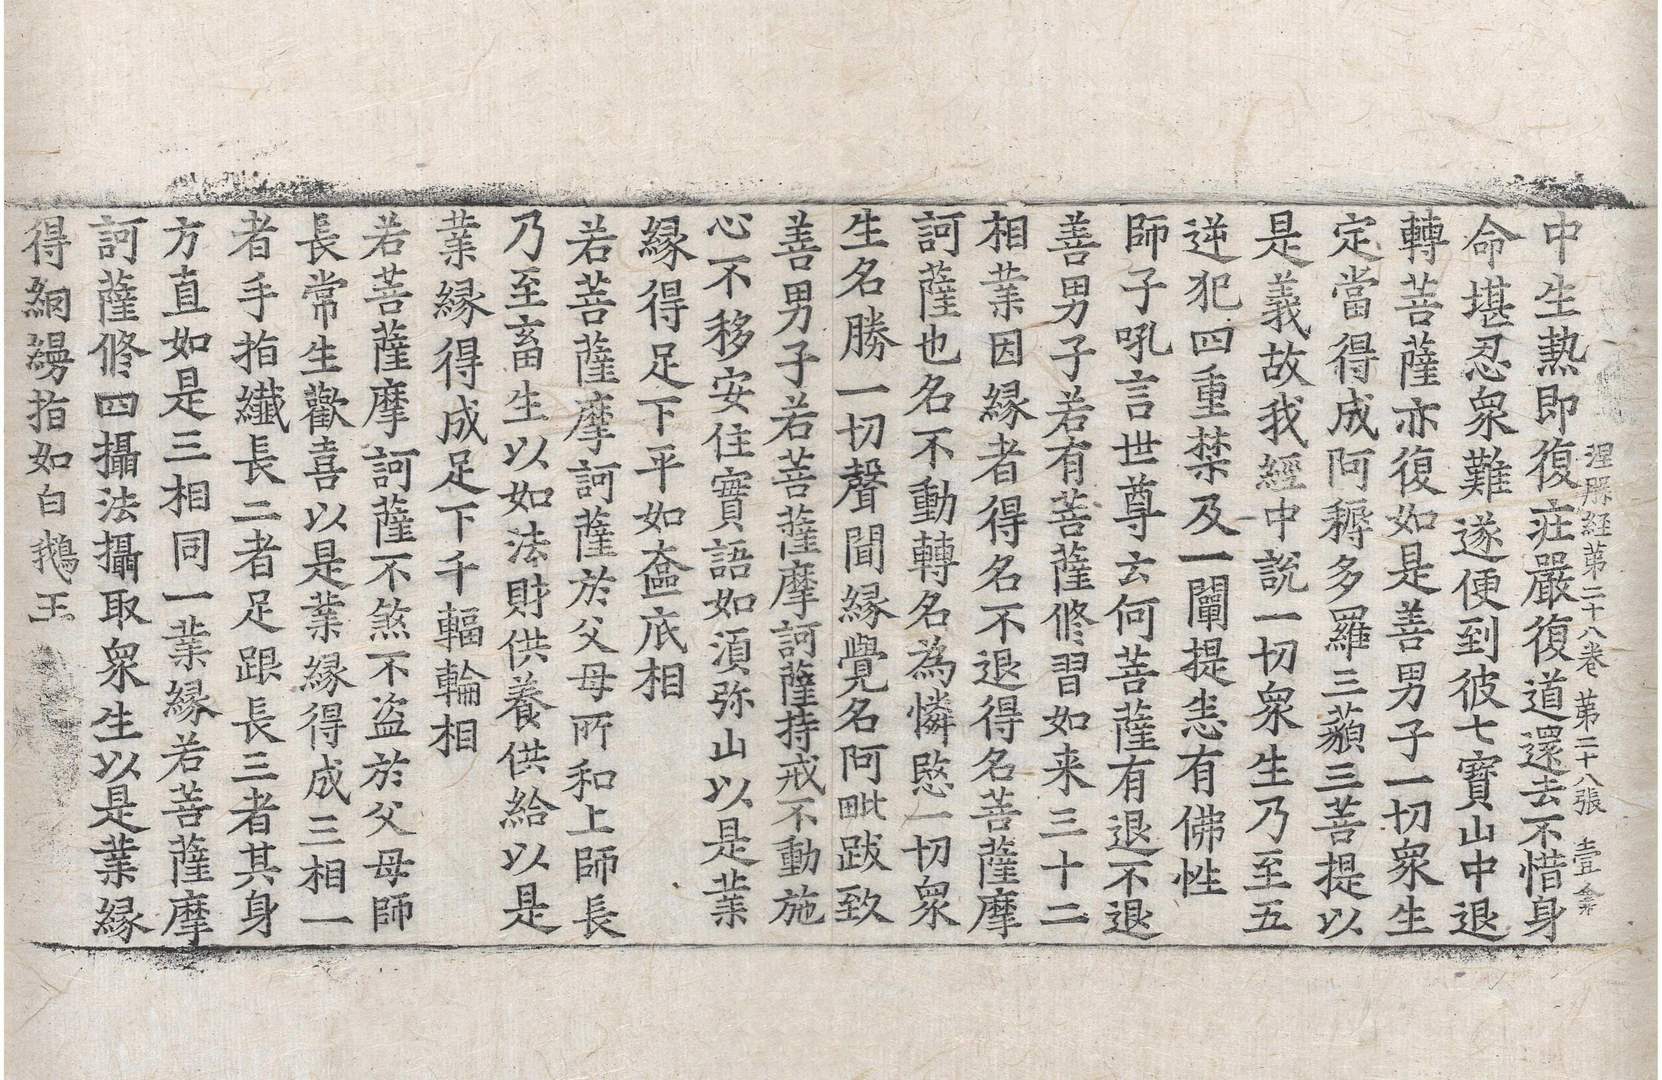 涅槃経第二十八卷 第二十八張 壹
中生熱即復莊嚴復道還去不惜身
命堪忍衆難遂便到彼七寶山中退
轉菩薩亦復如是善男子一切衆生
定當得成阿耨多羅三藐三菩提以
是義故我經中說一切衆生乃至五
逆犯四重禁及一闡提悉有佛性
師子吼言世尊云何菩薩有退不退
善男子若有菩薩修習如来三十二
相業因縁者得名不退得名菩薩摩
訶薩也名不動轉名為憐愍一切衆
生名勝一切聲聞縁覺名阿毗跋致
善男子若菩薩摩訶薩持戒不動施
心不移安住實語如湏弥山以是業
縁得足下平如奩底相
若菩薩摩訶薩於父母所和上師長
乃至畜生以如法財供養供給以是
業縁得成足下千輻輪相
若菩薩摩訶薩不煞不盗於父母師
長常生歡喜以是業縁得成三相一
者手指纖長二者足跟長三者其身
方直如是三相同一業縁若菩薩摩
訶薩修四攝法攝取衆生以是業縁
得網縵指如白鵝王